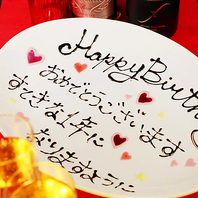 Happy Birth
おめでとうございます
すてきな1年に
なりますように